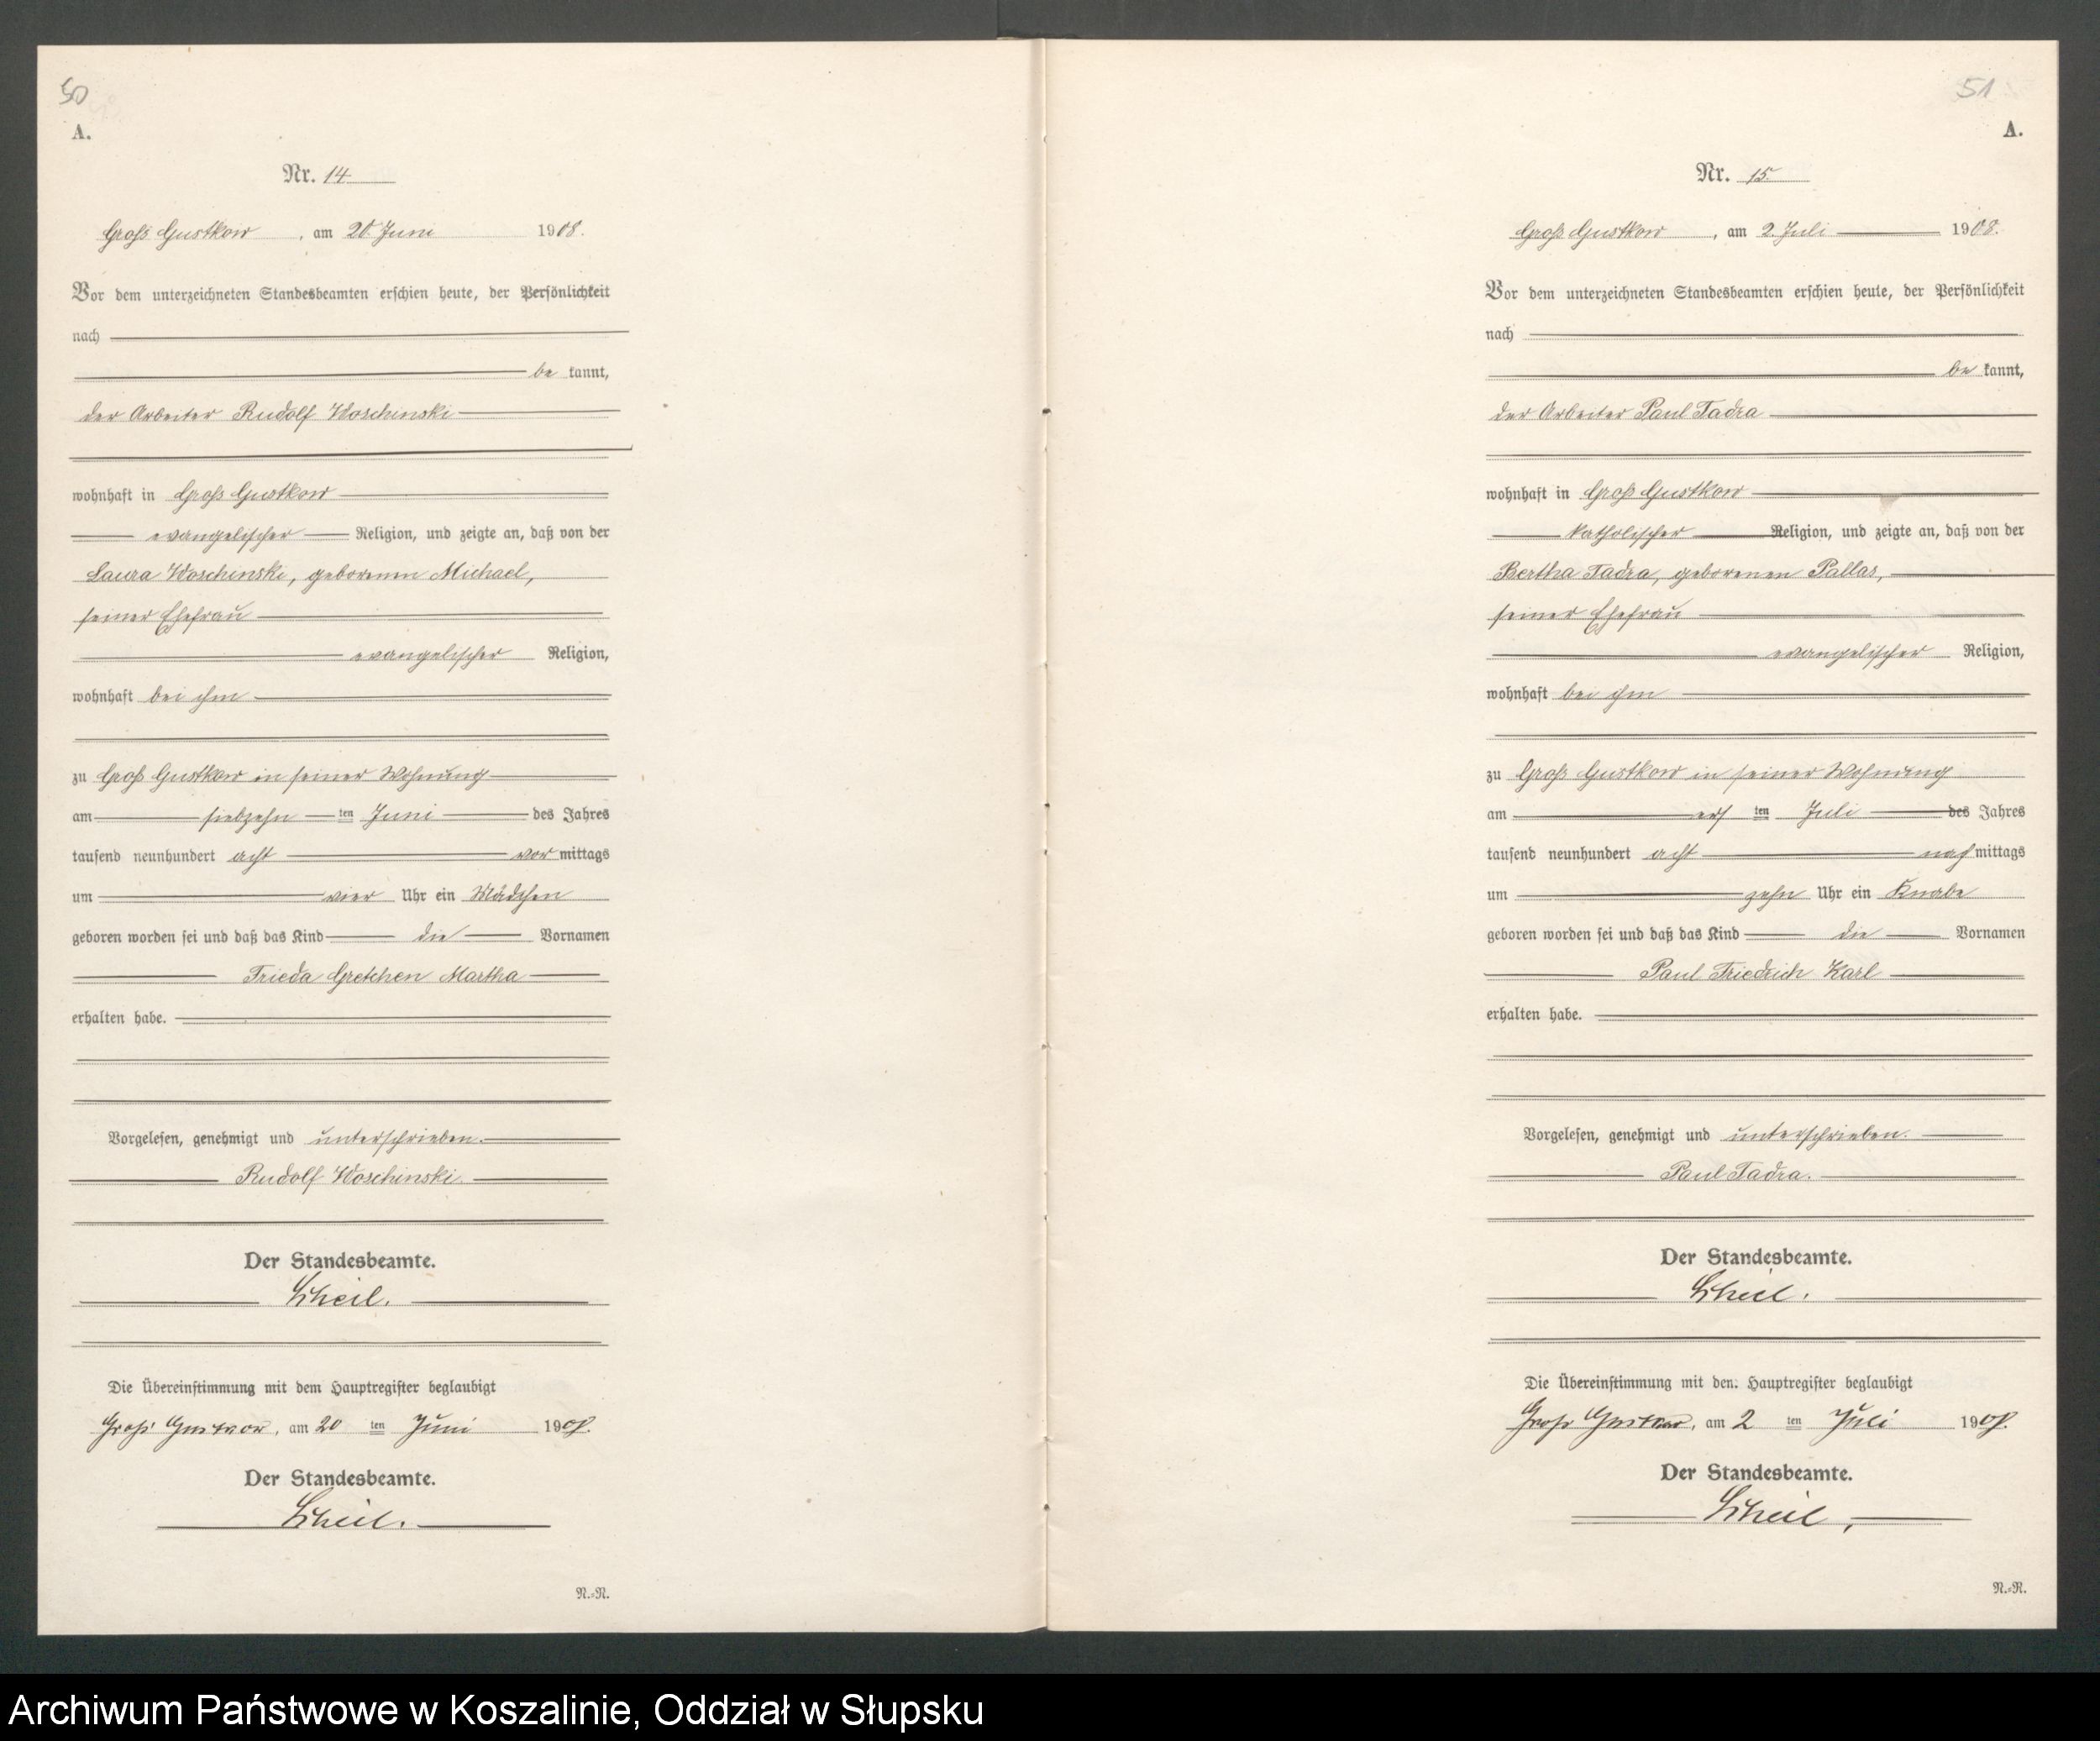 50
A.
Nr. 14
Groß Gustkow, am 20. Juni 1908.
Vor dem unterzeichneten Standesbeamten erschien heute, der Persönlichkeit
nach
be kannt,
der Arbeiter Rudolf Woschinski
wohnhaft in Groß Gustkow
evangelischer Religion, und zeigte an, daß von der
Laura Woschinski, geborenen Michael,
seiner Ehefrau
evangelischer Religion,
wohnhaft bei ihm
zu Groß Gustkow in seiner Wohnung
am siebzehn ten Juni des Jahres
tausend neunhundert acht vor mittags
um vier Uhr ein Mädchen
geboren worden sei und daß das Kind die Vornamen
Frieda Gretchen Martha
erhalten habe.
Vorgelesen, genehmigt und unterschrieben.
Rudolf Woschinski.
Der Standesbeamte.
Scheil.
Die Übereinstimmung mit dem Hauptregister beglaubigt
Groß Gustkow, am 20 ten Juni 1908.
Der Standesbeamte.
Scheil.
N.=N.
51
A.
Nr. 15.
Groß Gustkow, am 2. Juli 1908.
Vor dem unterzeichneten Standesbeamten erschien heute, der Persönlichkeit
nach
be kannt,
der Arbeiter Paul Tadra
wohnhaft in Groß Gustkow
katholischer Religion, und zeigte an, daß von der
Bertha Tadra, geborenen Pallas,
seiner Ehefrau
evangelischer Religion,
wohnhaft bei ihm
zu Groß Gustkow in seiner Wohnung
am ers ten Juli des Jahres
tausend neunhundert acht nach mittags
um zehn Uhr ein Knabe
geboren worden sei und daß das Kind die Vornamen
Paul Friedrich Karl
erhalten habe.
Vorgelesen, genehmigt und unterschrieben.
Paul Tadra.
Der Standesbeamte.
Scheil.
Die Übereinstimmung mit dem Hauptregister beglaubigt
Groß Gustkow, am 2 ten Juli 1908.
Der Standesbeamte.
Scheil.
N.=N.
Archiwum Państwowe w Koszalinie, Oddział w Słupsku